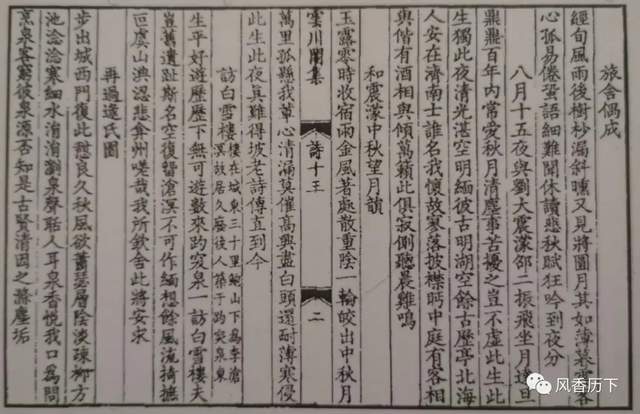 旅舍偶成
經旬風雨後樹杪漏斜曛又見將圓月其如薄暮雲客
心孤易倦蛩語細難聞休讀悲秋賦狂吟到夜分
八月十五夜與劉大震濛邵二振飛坐月達旦
鼎鼎百年內常妄秋月清塵事苦擾之豈不虛此生此
生獨此夜清光湛空明緬彼古明湖空餘古歷亭北海
人安在濟南士誰名我懷故寥落披襟眄中庭有客相
與偕有酒相與傾萬籟此俱寂側聽晨雞鳴
和震濛中秋望月韻
玉露零時收宿雨金風著處散重陰一輪皎出中秋月
雲川閣集 詩十三 二
萬里孤懸我輩心清漏莫催高興盡白頭還耐薄寒侵
此生此夜真難得坡老詩傳直到今
訪白雪樓 樓在城東三十里鮑山下為李滄
溟故居久廢後人築于趵突泉東
生平好遊歷歷下無可遊數來趵突泉一訪白雪樓夫
豈舊遺趾斯名空復留滄溟不可作緬想餘風流掎撫
叵虞山淟涊悲弇州嗟哉我所欽舍此將安求
再過逯氏園
步出城西門復此憩良久秋風欲蕭瑟層陰淡疎柳方
池淰淰寒細水涓涓瀏泉聲聒人耳泉香悅我口為問
烹泉客窮彼泉源否知是古賢清因之滌塵垢
风香历下